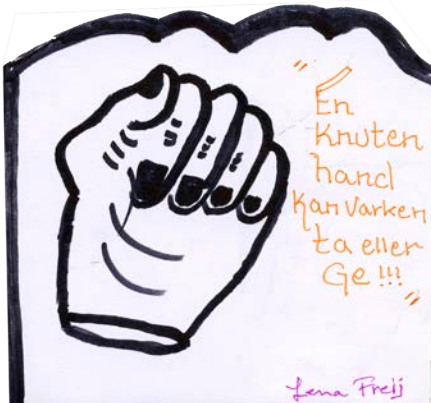 "En
Knuten
hand
Kan Varken
ta eller
Ge !!!
"
Lena Freij